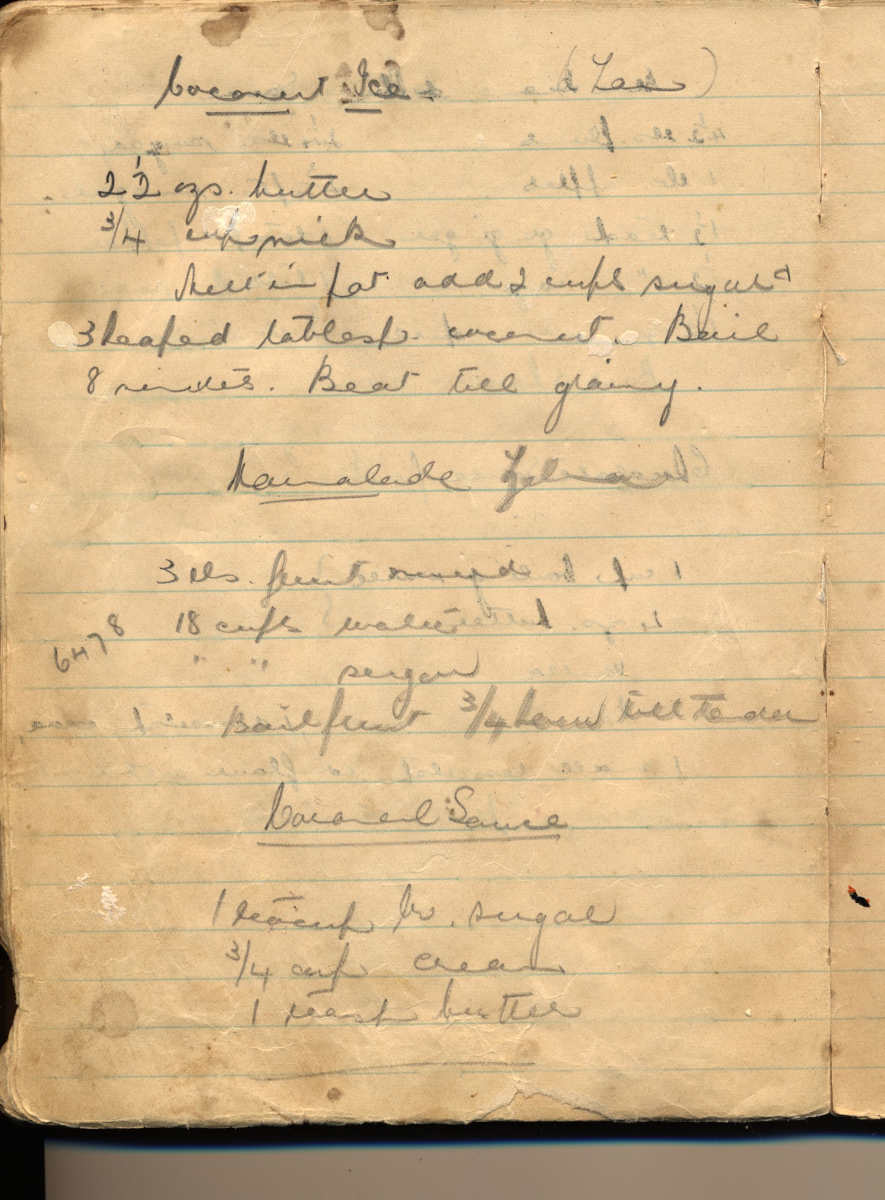 Cocoanut Ice. (Lee)
2 1/2 ozs. butter
3/4 cup milk
Melt in pot add 2 cups sugar &
3 heaped tablesp. coconut. Boil
8 minutes. Beat till grainy.
Marmalade
3 lbs. fruit minced
18 cups water
6478
" " sugar
Boil fruit 3/4 hour till tender
Caramel Sauce
1 teacup br. sugar
3/4 cup cream
1 teasp butter